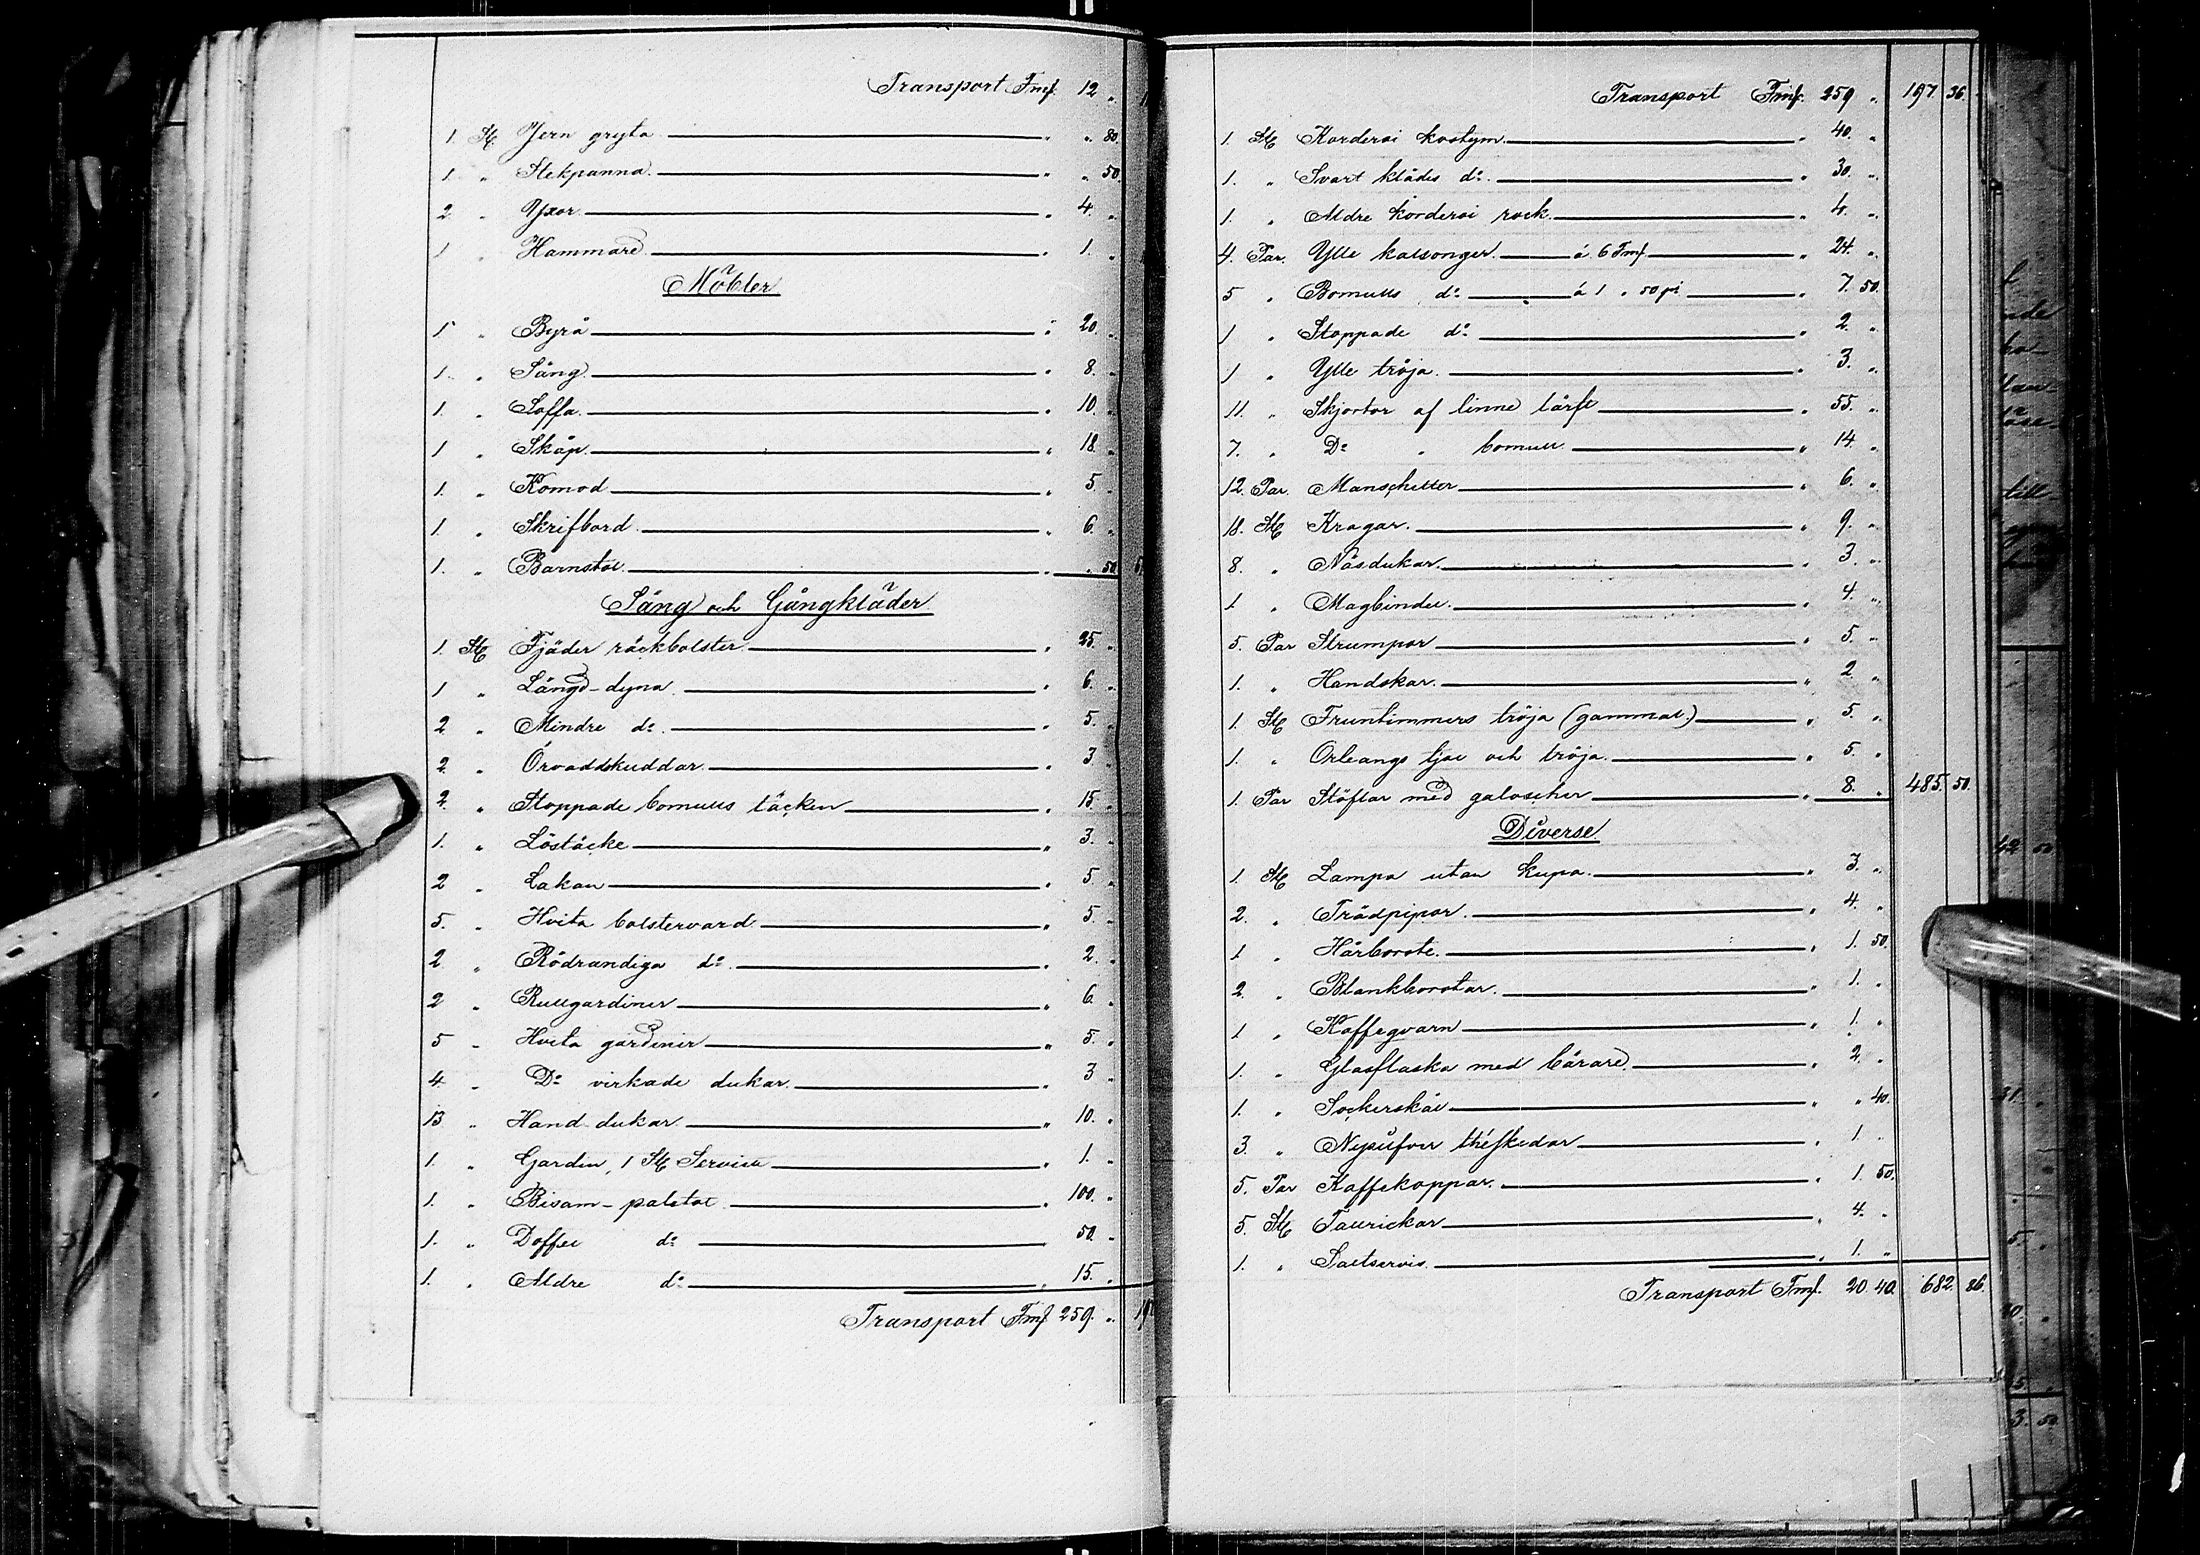 Transport Fmf. 12 „
1. St. Jern gryta „ „ 80.
1 „ Stekpanna. „ „ 50.
2 „ Yxor „ 4. „
1 „ Hammare „ 1. „
Möbler
1 „ Byrå „ 20. „
1. „ Säng „ 8. „
1. „ Soffa. „ 10. „
1 „ Skåp. „ 18. „
1. „ Komod „ 5. „
1. „ Skrifbord. „ 6. „
1. „ Barnstol. „ „ 50
Säng och Gångkläder
1. St. Fjäder räckbolster „ 25. „
1 „ Längd-dyna. „ 6. „
2 „ Mindre d:o „ 5. „
2. „ Örvaddskuddar „ 3. „
2. „ Stoppade bomulls täcken „ 15. „
1. „ Löstäcke „ 3. „
2 „ Lakan „ 5. „
5. „ Hvita bolstervard „ 5. „
2 „ Rödrandiga d:o „ 2. „
2 „ Rullgardiner „ 6. „
5 „ Hvita gardiner „ 5. „
4 „ D:o virkade dukar. „ 3 „
13 „ Hand dukar „ 10. „
1. „ Gardin, 1 St. Serviett „ 1. „
1. „ Bisam-paletot „ 100. „
1. „ Doffel d:o 50. „
1. „ Äldre d:o „ 15. „
Transport Fmf 259. „ 19
Transport Fmf. 259 „ 197 36.
1. St. Korderoi kostym. „ 40. „
1. „ Svart klädes d:o „ 30. „
1. „ Äldre korderoi rock. „ 4. „
4. Par. Ylle kalsonger. á 6 Fmf „ 24. „
5 „ Bomulls d:o á 1 „ 50 pi „ 7. 50.
1 „ Stoppade d:o „ 2. „
1 „ Ylle tröja. „ 3. „
11. „ Skjortor af linne lärft „ 55. „
7. „ D:o „ bomull „ 14. „
12. Par. Manschetter „ 6. „
18. St. Kragar. „ 9. „
8. „ Näsdukar. „ 3. „
1 „ Magbindel. „ 4. „
5. Par Strumpor „ 5. „
1. „ Handskar. „ 2 „
1. St. Fruntimmers tröja (gammal.) „ 5. „
1. „ Orleangs ljol och tröja. „ 5. „
1. Par Stöflar med galoscher „ 8. „ 485. 50.
Diverse
1. St. Lampa utan kupa. „ 3. „
2. „ Trädpipor. „ 4. „
1 „ Hårborste. „ 1. 50.
2. „ Blankborstar. „ 1. „
1 „ Kaffeqvarn „ 1. „
1. „ Glasflaska med bärare. „ 2. „
1. „ Sockerskål „ „ 40.
3. „ Nysilfver théskedar „ 1 „
5. Par Kaffekoppar. „ 1. 50.
5 St. Tallrickar „ 4. „
1. „ Saltservis. „ 1. „
Transport Fmf. 20. 40. 682. 86.